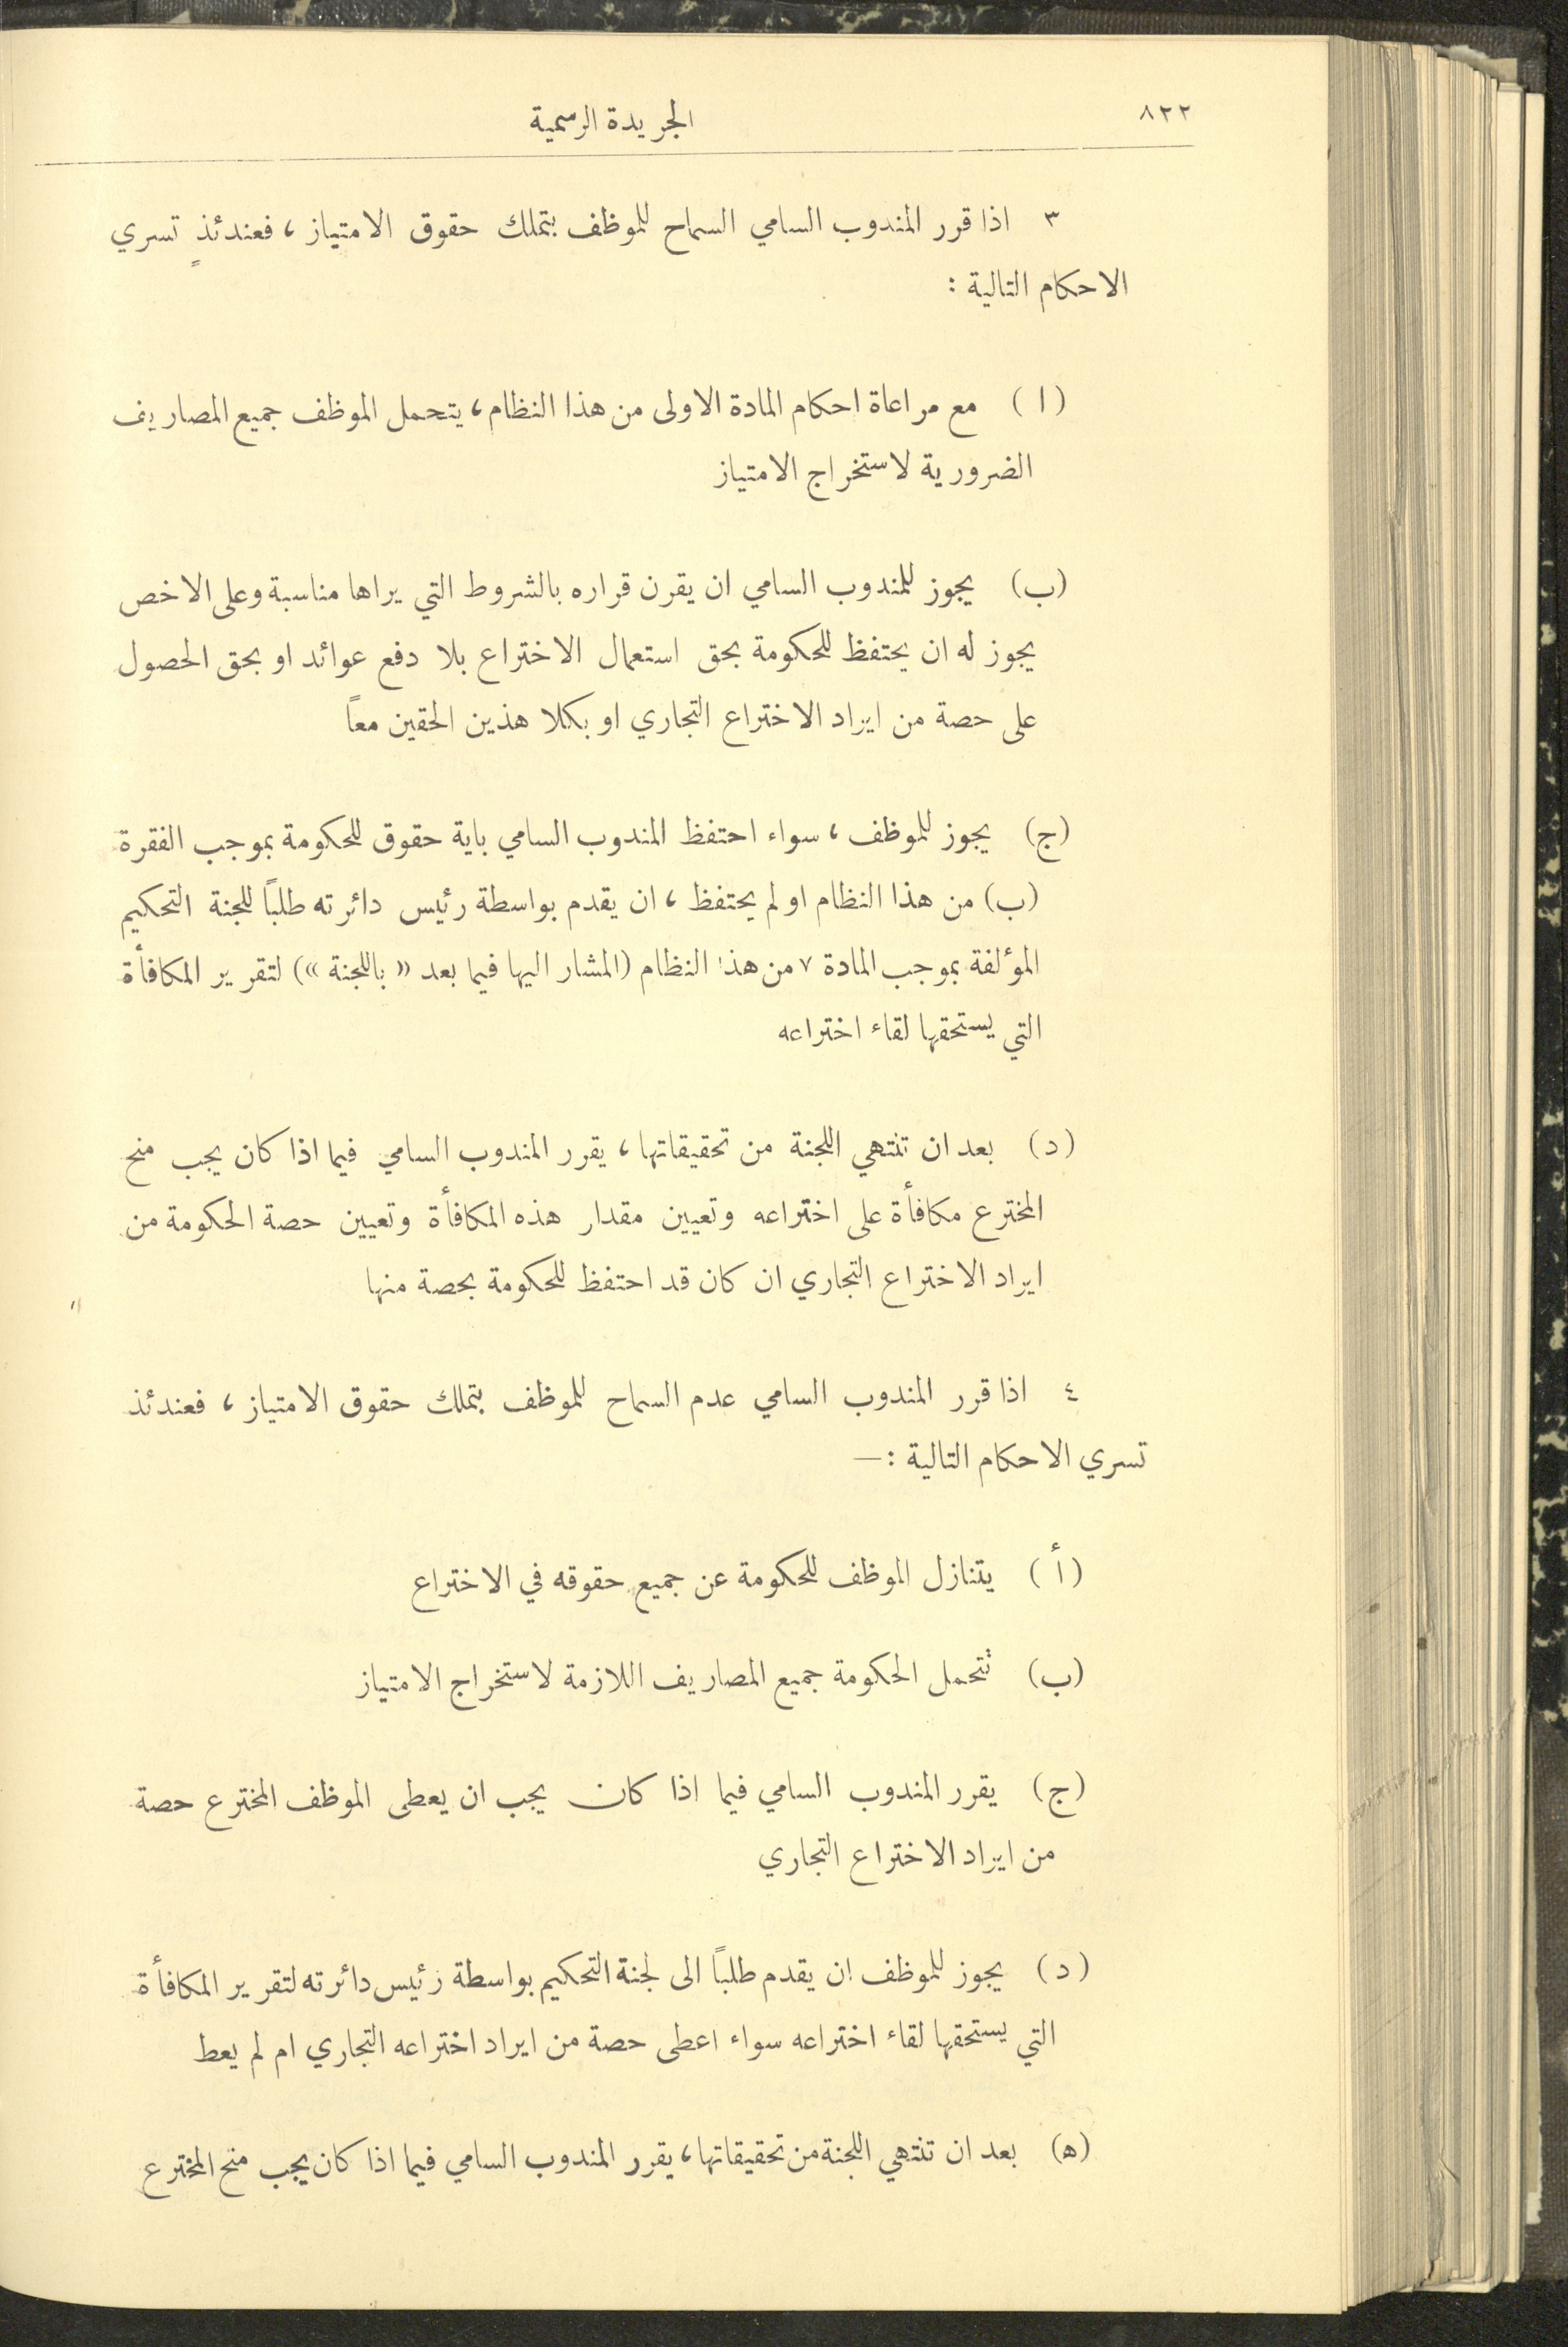 ٨٢٢
الجريدة الرسمية
٣ اذا قرر المندوب السامي السماح للموظف بتملك حقوق الامتياز ، فعندئذٍ تسري
الاحكام التالية :
( ا ) مع مراعاة احكام المادة الاولى من هذا النظام ، يتحمل الموظف جميع المصاريف
الضرورية لاستخراج الامتياز
(ب) يجوز للمندوب السامي ان يقرن قراره بالشروط التي يراها مناسبة وعلى الاخص
يجوز له ان يحتفظ للحكومة بحق استعمال الاختراع بلا دفع عوائد او بحق الحصول
على حصة من ايراد الاختراع التجاري او بكلا هذين الحقين معاً
(ج) يجوز للموظف ، سواء احتفظ المندوب السامي باية حقوق للحكومة بموجب الفقرة
(ب) من هذا النظام او لم يحتفظ ، ان يقدم بواسطة رئيس دائرته طلباً للجنة التحكيم
المؤلفة بموجب المادة ٧ من هذا النظام (المشار اليها فيما بعد « باللجنة ») لتقرير المكافأة
التي يستحقها لقاء اختراعه
(د) بعد ان تنتهي اللجنة من تحقيقاتها ، يقرر المندوب السامي فيما اذا كان يجب منح
المخترع مكافأة على اختراعه وتعيين مقدار هذه المكافأة وتعيين حصة الحكومة من
ايراد الاختراع التجاري ان كان قد احتفظ للحكومة بحصة منها
٤ اذا قرر المندوب السامي عدم السماح للموظف بتملك حقوق الامتياز ، فعندئذ
تسري الاحكام التالية :—
( أ ) يتنازل الموظف للحكومة عن جميع حقوقه في الاختراع
(ب) تتحمل الحكومة جميع المصاريف اللازمة لاستخراج الامتياز
(ج) يقرر المندوب السامي فيما اذا كان يجب ان يعطى الموظف المخترع حصة
من ايراد الاختراع التجاري
(د) يجوز للموظف ان يقدم طلباً الى لجنة التحكيم بواسطة رئيس دائرته لتقرير المكافأة
التي يستحقها لقاء اختراعه سواء اعطى حصة من ايراد اختراعه التجاري ام لم يعط
(ه) بعد ان تنتهي اللجنة من تحقيقاتها ، يقرر المندوب السامي فيما اذا كان يجب منح المخترع